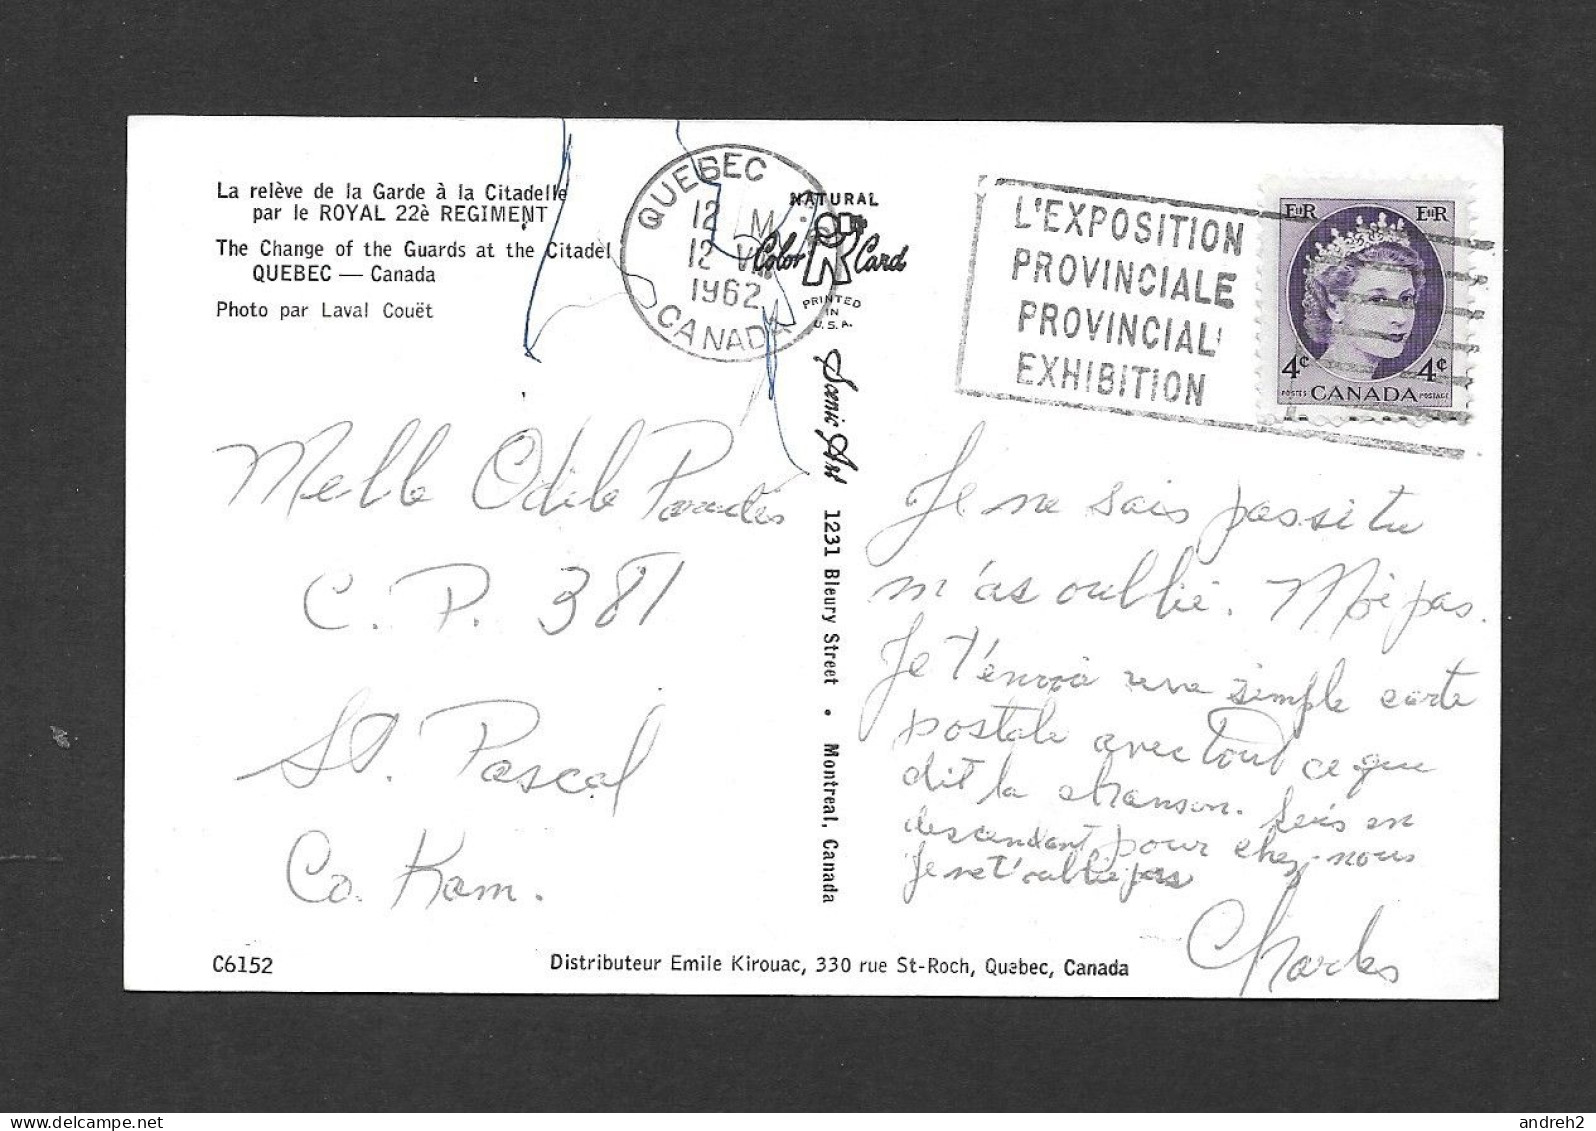 La relève de la Garde à la Citadelle
par le ROYAL 22è REGIMENT
The Change of the Guards at the Citadel
QUEBEC — Canada
Photo par Laval Couët
QUEBEC
12 M
12 V
1962
CANADA
NATURAL
Color Card
PRINTED
IN
U.S.A.
L'EXPOSITION
PROVINCIALE
PROVINCIAL
EXHIBITION
EIIR EIIR
4¢ 4¢
POSTES CANADA POSTAGE
Scenic Art 1231 Bleury Street • Montreal, Canada
Melle Odile Paradis
C. P. 381
St. Pascal
Co. Kam.
Je ne sais pas si tu
m'as oublié. Moi pas.
Je t'envoi une simple carte
postale avec tout ce que
dit la chanson. Suis en
descendant pour chez-nous
Je ne t'oublie pas
Charles
C6152
Distributeur Emile Kirouac, 330 rue St-Roch, Quebec, Canada
andreh2